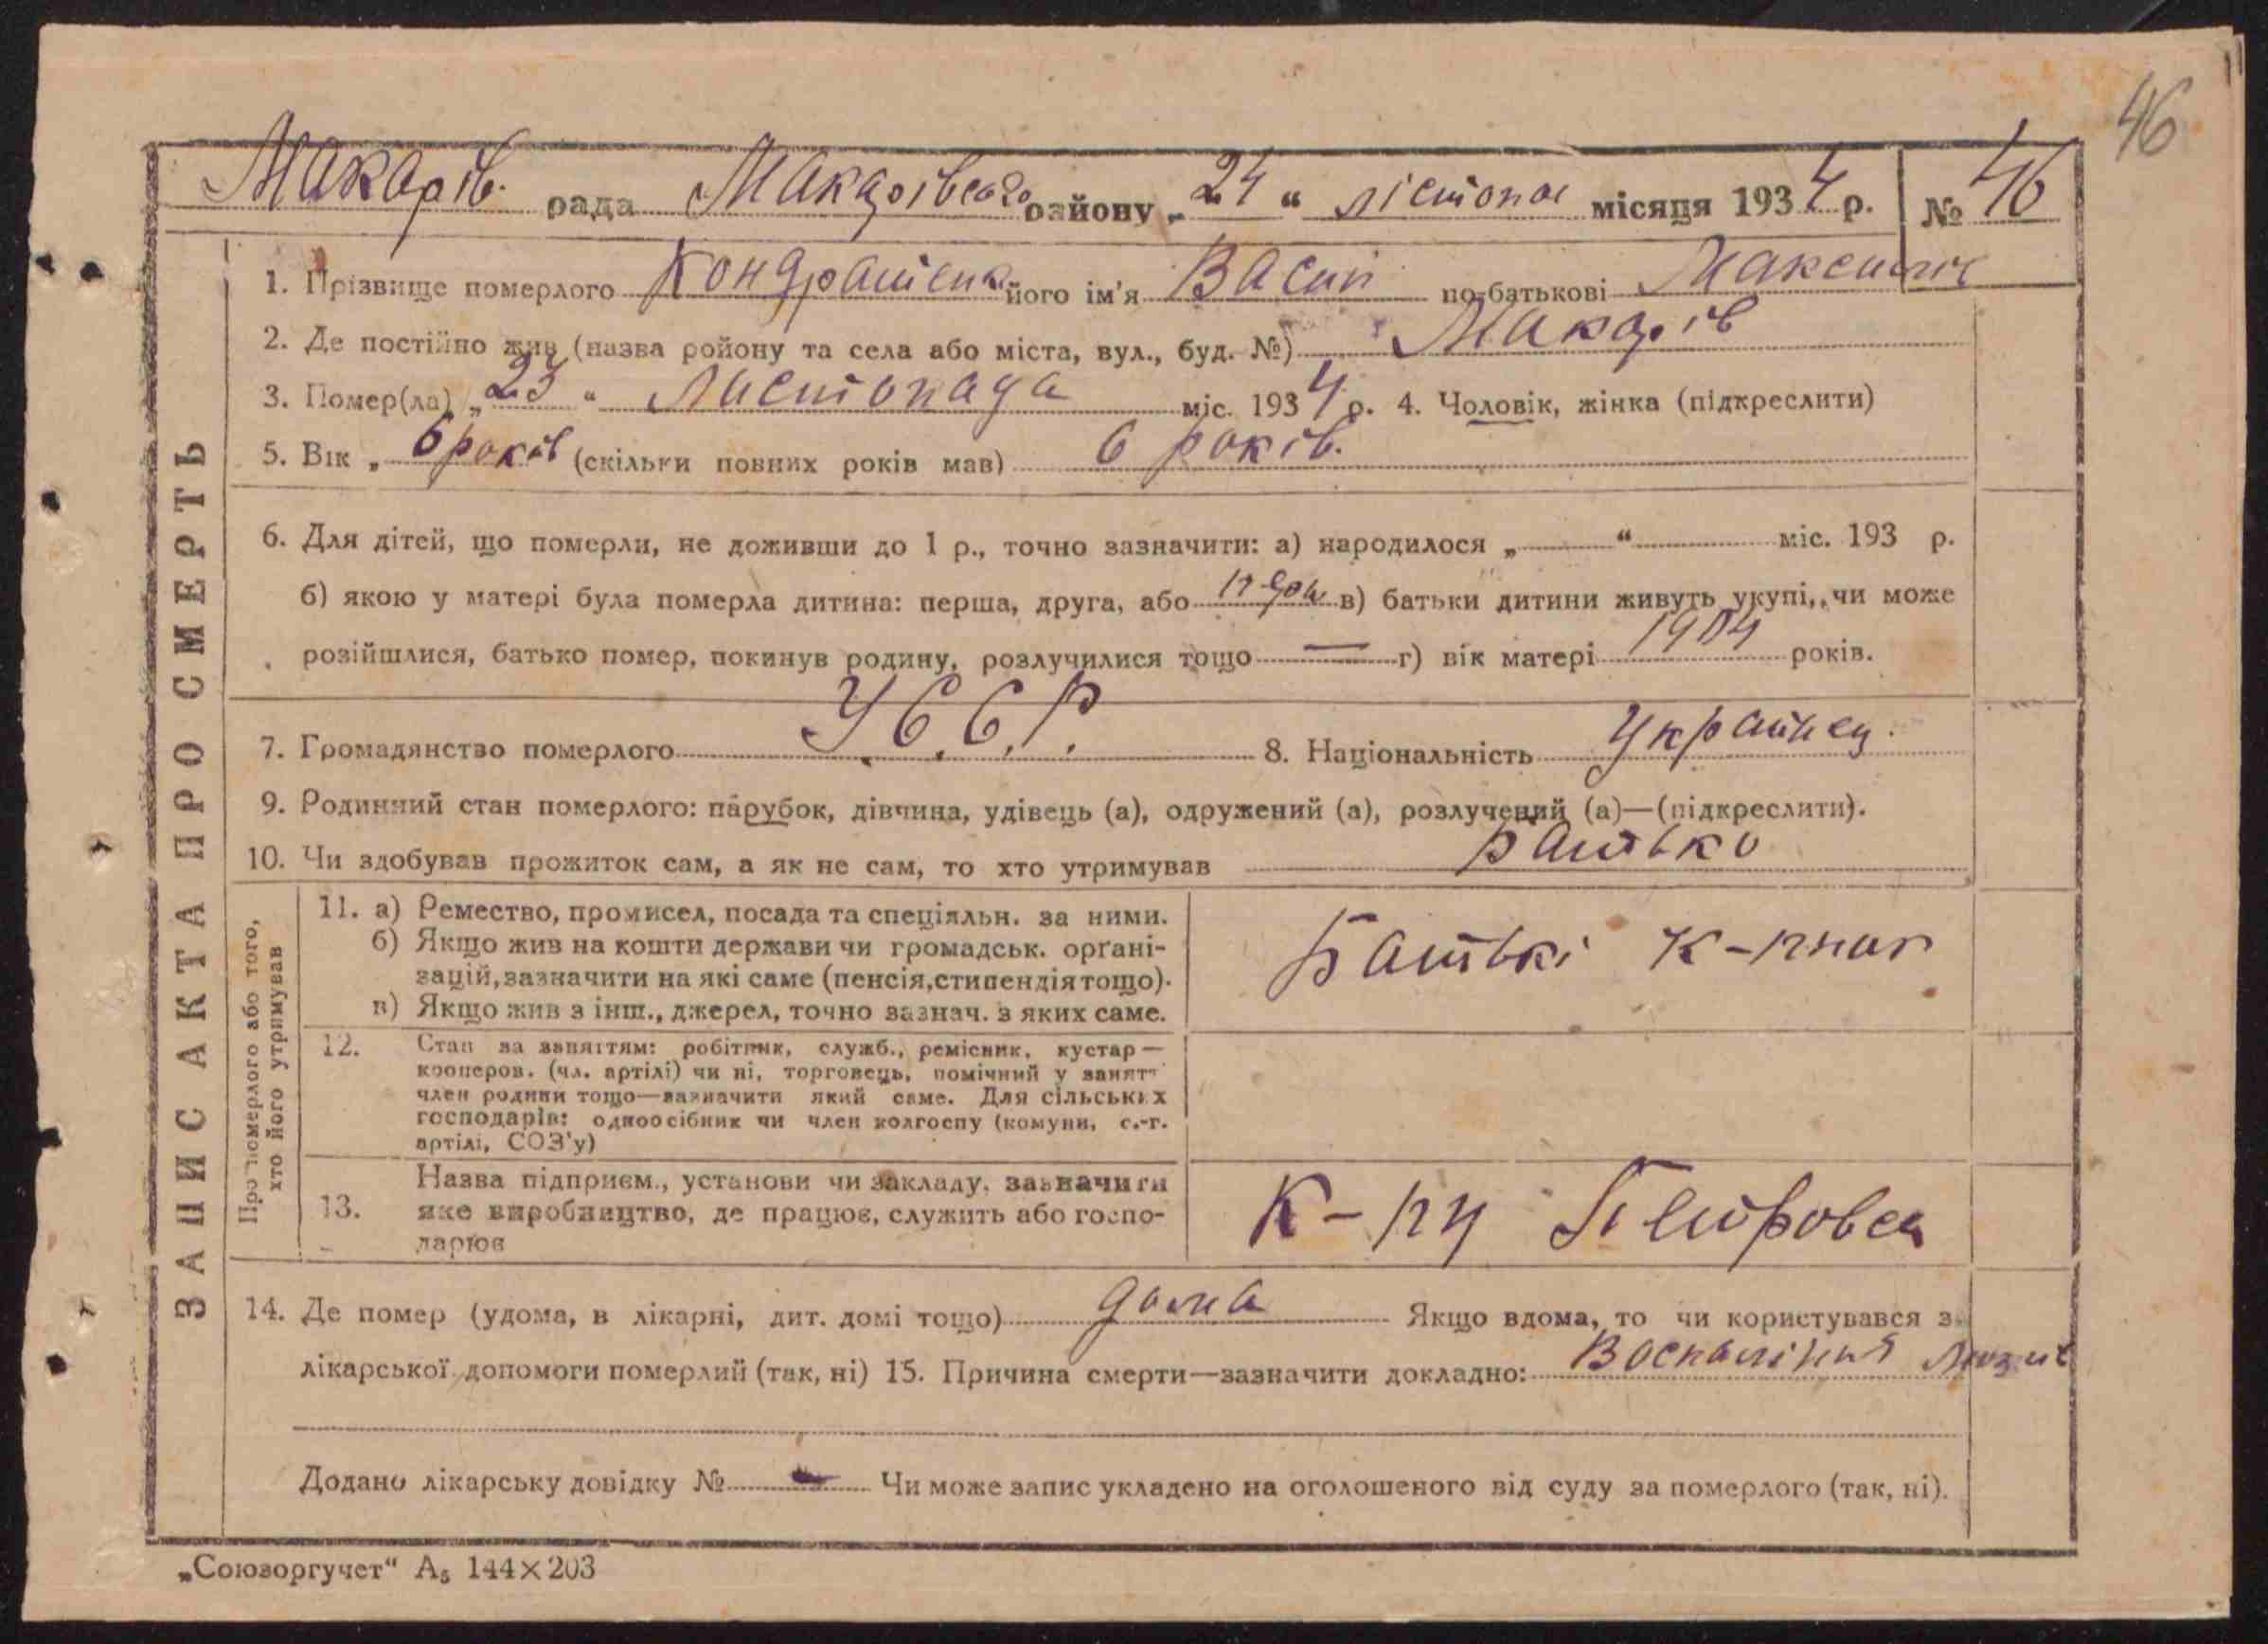 46
Макарів. рада Макарівсього району „24“ лістопа місяця 1934 р. № 46
1. Прізвище померлого Кондратенк його ім'я Васил по-батькові
2. Де постійно жив (назва ройону та села або міста, вул., буд. №) Макарів
3. Помер(ла) „23“ Листопада міс. 1934 р. 4. Чоловік, жінка (підкреслити)
5. Вік „ 6 років (скільки повних років мав) 6 років.
6. Для дітей, що померли, не доживши до 1 р., точно зазначити: а) народилося „ “ міс. 193 р.
б) якою у матері була померла дитина: перша, друга, або в) батьки дитини живуть укупі, чи може
розійшлися, батько помер, покинув родину, розлучилися тощо — г) вік матері 1904 років.
7. Громадянство померлого У.С.С.Р. 8. Національність Украйнец.
9. Родинний стан померлого: парубок, дівчина, удівець (а), одружений (а), розлучений (а)—(підкреслити).
10. Чи здобував прожиток сам, а як не сам, то хто утримував Батько
ЗАПИС АКТА ПРО СМЕРТЬ
Про померлого або того,
хто його утримував
11. а) Ремество, промисел, посада та спеціяльн. за ними.
б) Якщо жив на кошти держави чи громадськ. орґані-
зацій, зазначити на які саме (пенсія, стипендія тощо).
в) Якщо жив з інш., джерел, точно зазнач. з яких саме.
Батькі
12. Стан за заняттям: робітник, служб., ремісник, кустар —
кооперов. (чл. артілі) чи ні, торговець, помічний у занятт
член родини тощо—зазначити який саме. Для сільських
господарів: одноосібник чи член колгоспу (комуни, с.-г.
артілі, СОЗ'у)
13. Назва підприєм., установи чи закладу, зазначити
яке виробництво, де працює, служить або госпо-
дарює
К-пу Петровск
14. Де помер (удома, в лікарні, дит. домі тощо) дома Якщо вдома, то чи користувався з
лікарської допомоги померлий (так, ні) 15. Причина смерти—зазначити докладно: Воспаління
Додано лікарську довідку № Чи може запис укладено на оголошеного від суду за померлого (так, ні).
„Союзоргучет“ А₅ 144×203